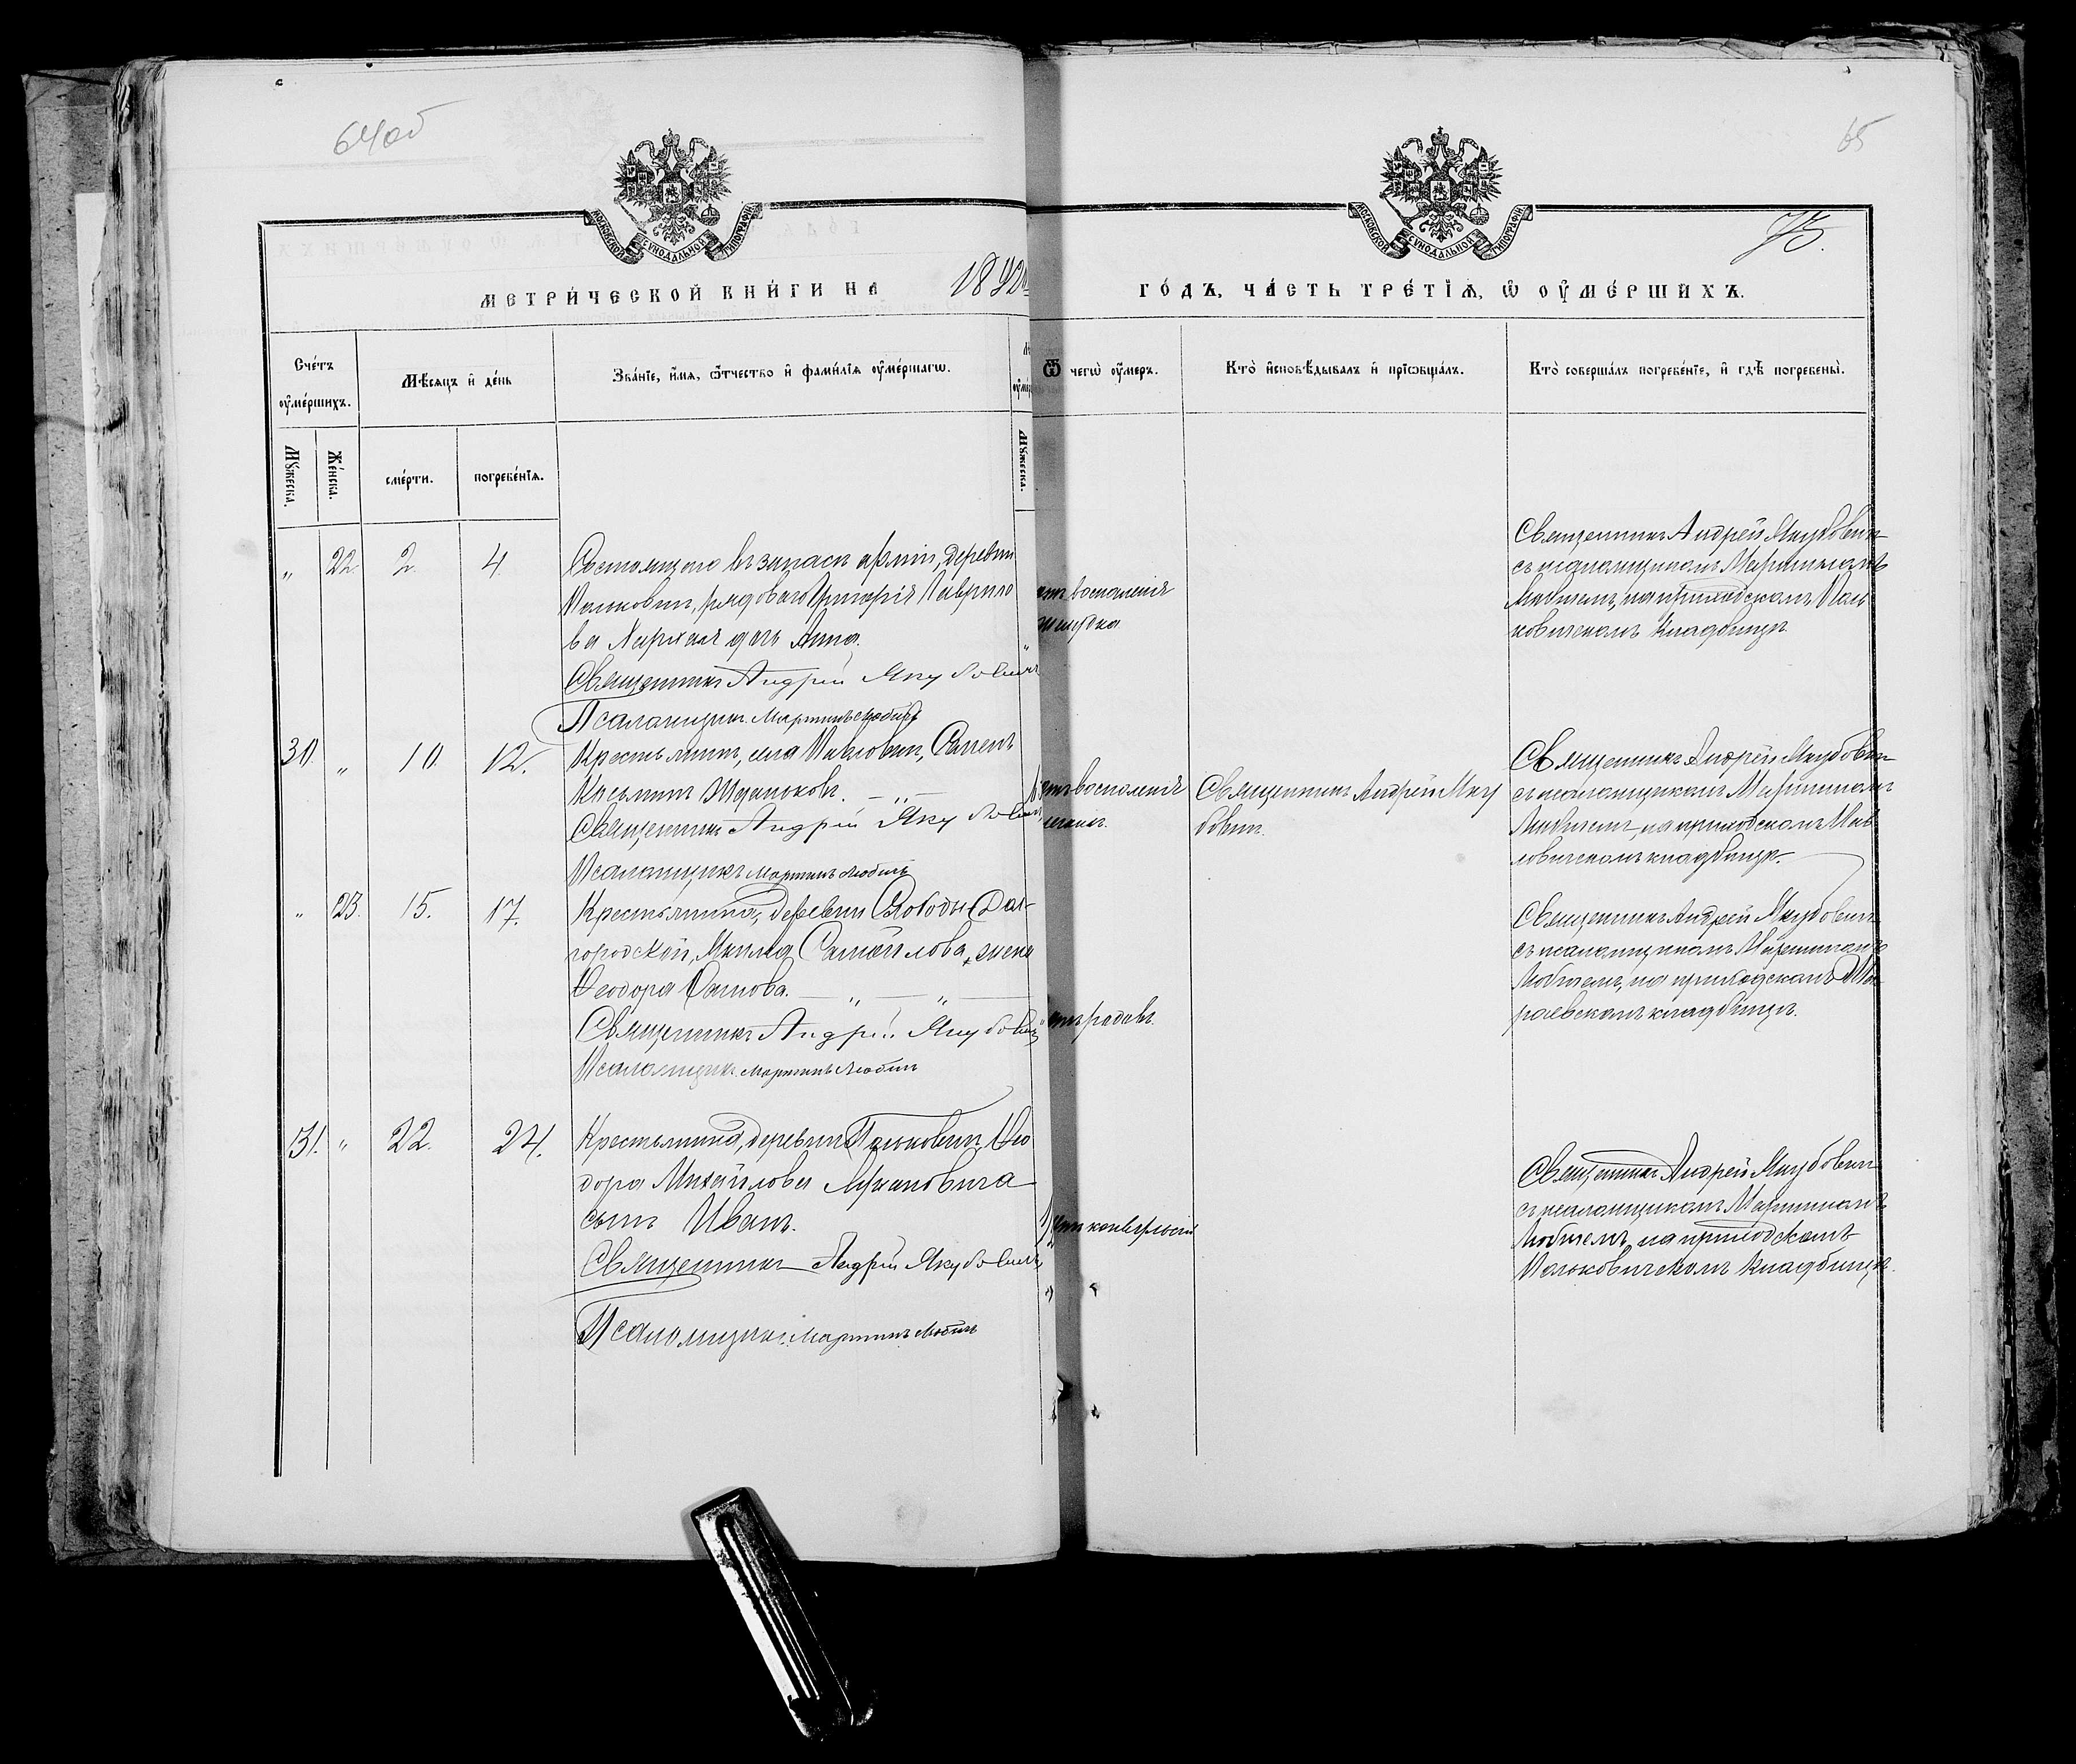 64об
65
75.
МОСКОВСКОЙ СѴНОДАЛЬНОЙ ТИПОГРАФІИ
МОСКОВСКОЙ СѴНОДАЛЬНОЙ ТИПОГРАФІИ
МЕТРИ́ЧЕСКОЙ КНИ́ГИ НА 18
ГО́ДЪ, ЧА́СТЬ ТРЕ́ТІѦ, Ѽ ОУ҆МЕ́РШИХЪ.
Сче́тъ оу҆ме́ршихъ.
Мѣ́сяцъ и҆ де́нь
Зва́нїе, и҆́мѧ, ѻ҆́тчество и҆ фами́лїѧ оу҆ме́ршагѡ.
Ѿ чегѡ̀ оу҆́меръ.
Кто̀ и҆сповѣ́дывалъ и҆ прїѡбща́лъ.
Кто̀ соверша́лъ погребе́нїе, и҆ гдѣ̀ погребены̀.
Мꙋ́жеска.
Же́нска.
сме́рти.
погребе́нїѧ.
Мꙋ́жеска.
„ 22 2. 4.
Состоящаго въ запасѣ арміи, деревни
рядоваго Григорія Гаврило
ва дочь Анна.
Священникъ Андрей Якубовичъ
Псаломщикъ Мартинъ Любичъ
отъ воспаленія
желудка
Священникъ Андрей Якубовичъ
съ псаломщикомъ Мартиномъ
Любичемъ, на приходскомъ
ковичскомъ кладбищѣ
30. „ 10. 12.
Крестьянинъ, села Семенъ
Священникъ Андрей Якубовичъ
Псаломщикъ Мартинъ Любичъ
отъ воспаленія
легкихъ.
Священникъ Андрей Яку
бовичъ.
Священникъ Андрей Якубовичъ
съ псаломщикомъ Мартиномъ
Любичемъ, на приходскомъ
ловичскомъ кладбищѣ.
„ 23. 15. 17.
Крестьянина, деревни Слободы Дол-
городской, Самойлова, жена
Ѳеодора
Священникъ Андрей Якубовичъ
Псаломщикъ Мартинъ Любичъ
отъ родовъ.
Священникъ Андрей Якубовичъ
съ псаломщикомъ Мартиномъ
Любичемъ, на приходскомъ
кладбищѣ.
31. „ 22. 24.
Крестьянина, деревни Пальковичъ, Ѳео
дора Михайлова
сынъ Иванъ.
Священникъ Андрей Якубовичъ
Псаломщикъ Мартинъ Любичъ
Священникъ Андрей Якубовичъ
съ псаломщикомъ Мартиномъ
Любичемъ, на приходскомъ
Пальковичскомъ кладбищѣ.